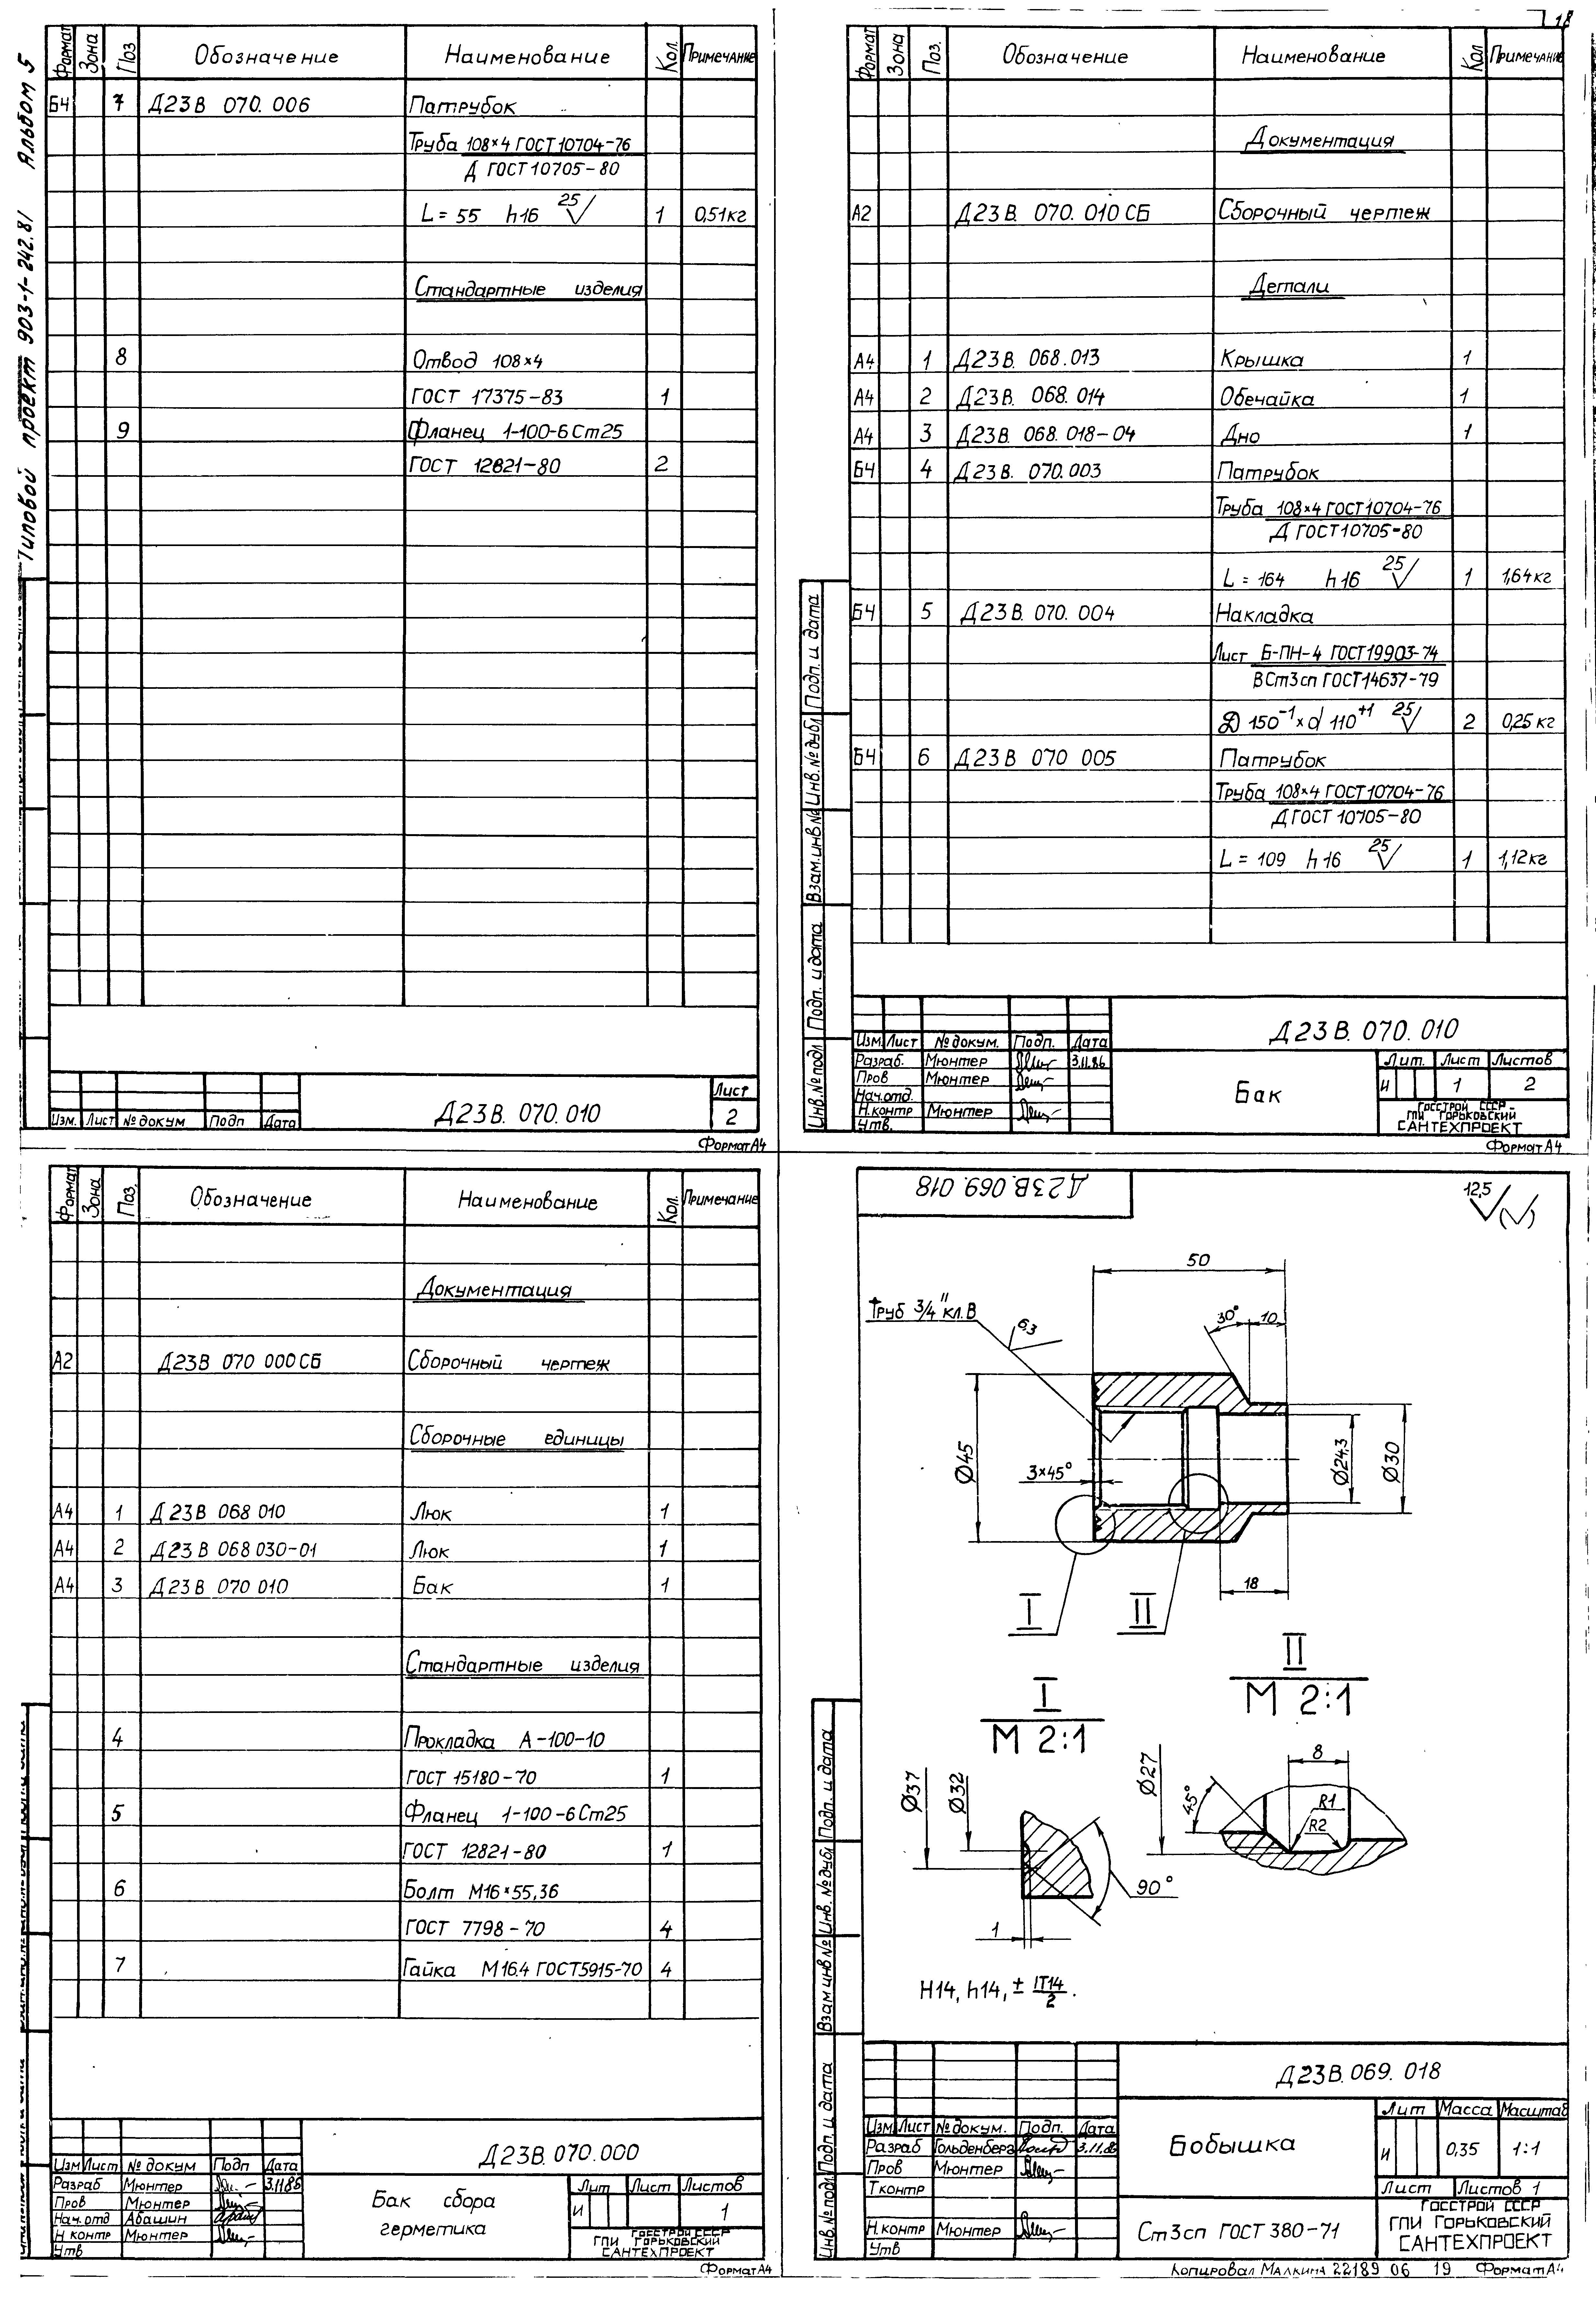 18
Типовой проект 903-1-242.8/ Альбом 5
Формат Зона Поз Обозначение Наименование Кол. Примечание
БЧ 7 Д23В 070.006 Патрубок
Труба 108×4 ГОСТ 10704-76
Д ГОСТ 10705-80
L = 55 h16 25 1 0,51кг
Стандартные изделия
8 Отвод 108×4
ГОСТ 17375-83 1
9 Фланец 1-100-6 Ст25
ГОСТ 12821-80 2
Изм. Лист № докум Подп Дата
Д23В. 070. 010
Лист
2
Формат А4
Формат Зона Поз. Обозначение Наименование Кол Примечание
Документация
А2 Д23В. 070. 010 СБ Сборочный чертеж
Детали
А4 1 Д23В. 068.013 Крышка 1
А4 2 Д23В. 068. 014 Обечайка 1
А4 3 Д23В. 068. 018-04 Дно 1
БЧ 4 Д23В. 070.003 Патрубок
Труба 108×4 ГОСТ 10704-76
Д ГОСТ 10705-80
L = 164 h16 25 1 1,64кг
БЧ 5 Д23В. 070. 004 Накладка
Лист Б-ПН-4 ГОСТ 19903-74
ВСт3сп ГОСТ 14637-79
D 150⁻¹ × d 110⁺¹ 25 2 0,25 кг
БЧ 6 Д23В 070 005 Патрубок
Труба 108×4 ГОСТ 10704-76
Д ГОСТ 10705-80
L = 109 h16 25 1 1,12кг
Инв.№ подл Подп. и дата Взам.инв № Инв.№ дубл Подп. и дата
Д23В. 070. 010
Изм. Лист № докум. Подп. Дата
Разраб. Мюнтер 3.11.86
Пров Мюнтер
Нач.отд.
Н.контр Мюнтер
Утв.
Бак
Лит. Лист Листов
И 1 2
ГОССТРОЙ СССР
ГПИ ГОРЬКОВСКИЙ
САНТЕХПРОЕКТ
Формат А4
Формат Зона Поз. Обозначение Наименование Кол. Примечание
Документация
А2 Д23В 070 000 СБ Сборочный чертеж
Сборочные единицы
А4 1 Д23В 068 010 Люк 1
А4 2 Д23В 068 030-01 Люк 1
А4 3 Д23В 070 010 Бак 1
Стандартные изделия
4 Прокладка А-100-10
ГОСТ 15180-70 1
5 Фланец 1-100-6 Ст25
ГОСТ 12821-80 1
6 Болт М16×55,36
ГОСТ 7798-70 4
7 Гайка М16.4 ГОСТ 5915-70 4
Д23В. 070. 000
Изм Лист № докум Подп Дата
Разраб Мюнтер 3.11.86
Пров Мюнтер
Нач.отд Абашин
Н контр Мюнтер
Утв
Бак сбора
герметика
Лит Лист Листов
И 1
ГОССТРОЙ СССР
ГПИ ГОРЬКОВСКИЙ
САНТЕХПРОЕКТ
Формат А4
Д23В. 069. 018
12,5
(√)
50
Труб 3/4" кл. В
6,3
30°
10
Ø45
3×45°
Ø24,3
Ø30
18
I
II
I
М 2:1
II
М 2:1
Ø37
Ø32
90°
1
Ø27
8
45°
R1
R2
Н14, h14, ± IT14/2.
Инв.№ подл. Подп. и дата Взам инв № Инв. № дубл Подп. и дата
Д23В. 069. 018
Изм Лист № докум. Подп. Дата
Разраб Гольденберг 3.11.86
Пров Мюнтер
Т контр
Н.контр Мюнтер
Утв
Бобышка
Лит Масса Масштаб
И 0,35 1:1
Лист Листов 1
Ст3сп ГОСТ 380-71
ГОССТРОЙ СССР
ГПИ ГОРЬКОВСКИЙ
САНТЕХПРОЕКТ
Копировал Малкина 22189 06 19 Формат А4